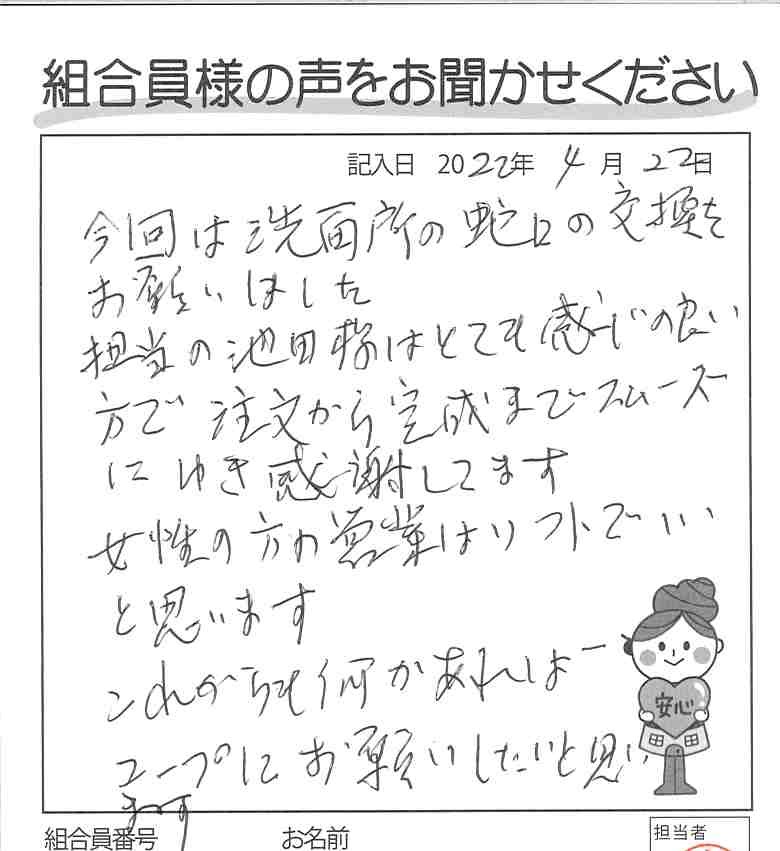 組合員様の声をお聞かせください
記入日 2022年 4月 22日
今回は洗面所の蛇口の交換を
お願いしました
担当の池田様はとても感じの良い
方で注文から完成までスムーズ
にゆき感謝してます
女性の方の営業はソフトでいい
と思います
これからも何かあればー
コープにお願いしたいと思い
ます
安心
組合員番号 お名前 担当者